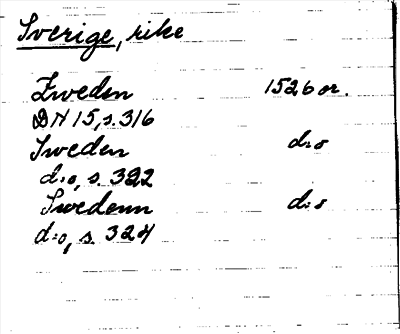 Sverige, rike
Zweden 1526 or.
DN 15, s. 316
Sweden d:o
d:o, s. 322
Swedenn d:o
d:o, s. 324